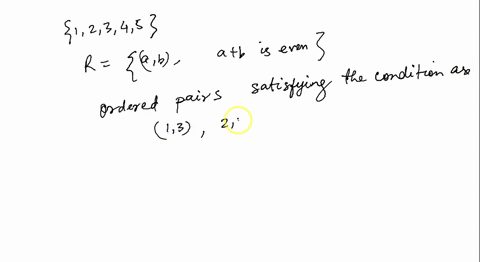 {1,2,3,4,5}
R = {(a,b), a+b is even}
ordered pairs satisfying the condition are
(1,3), 2,